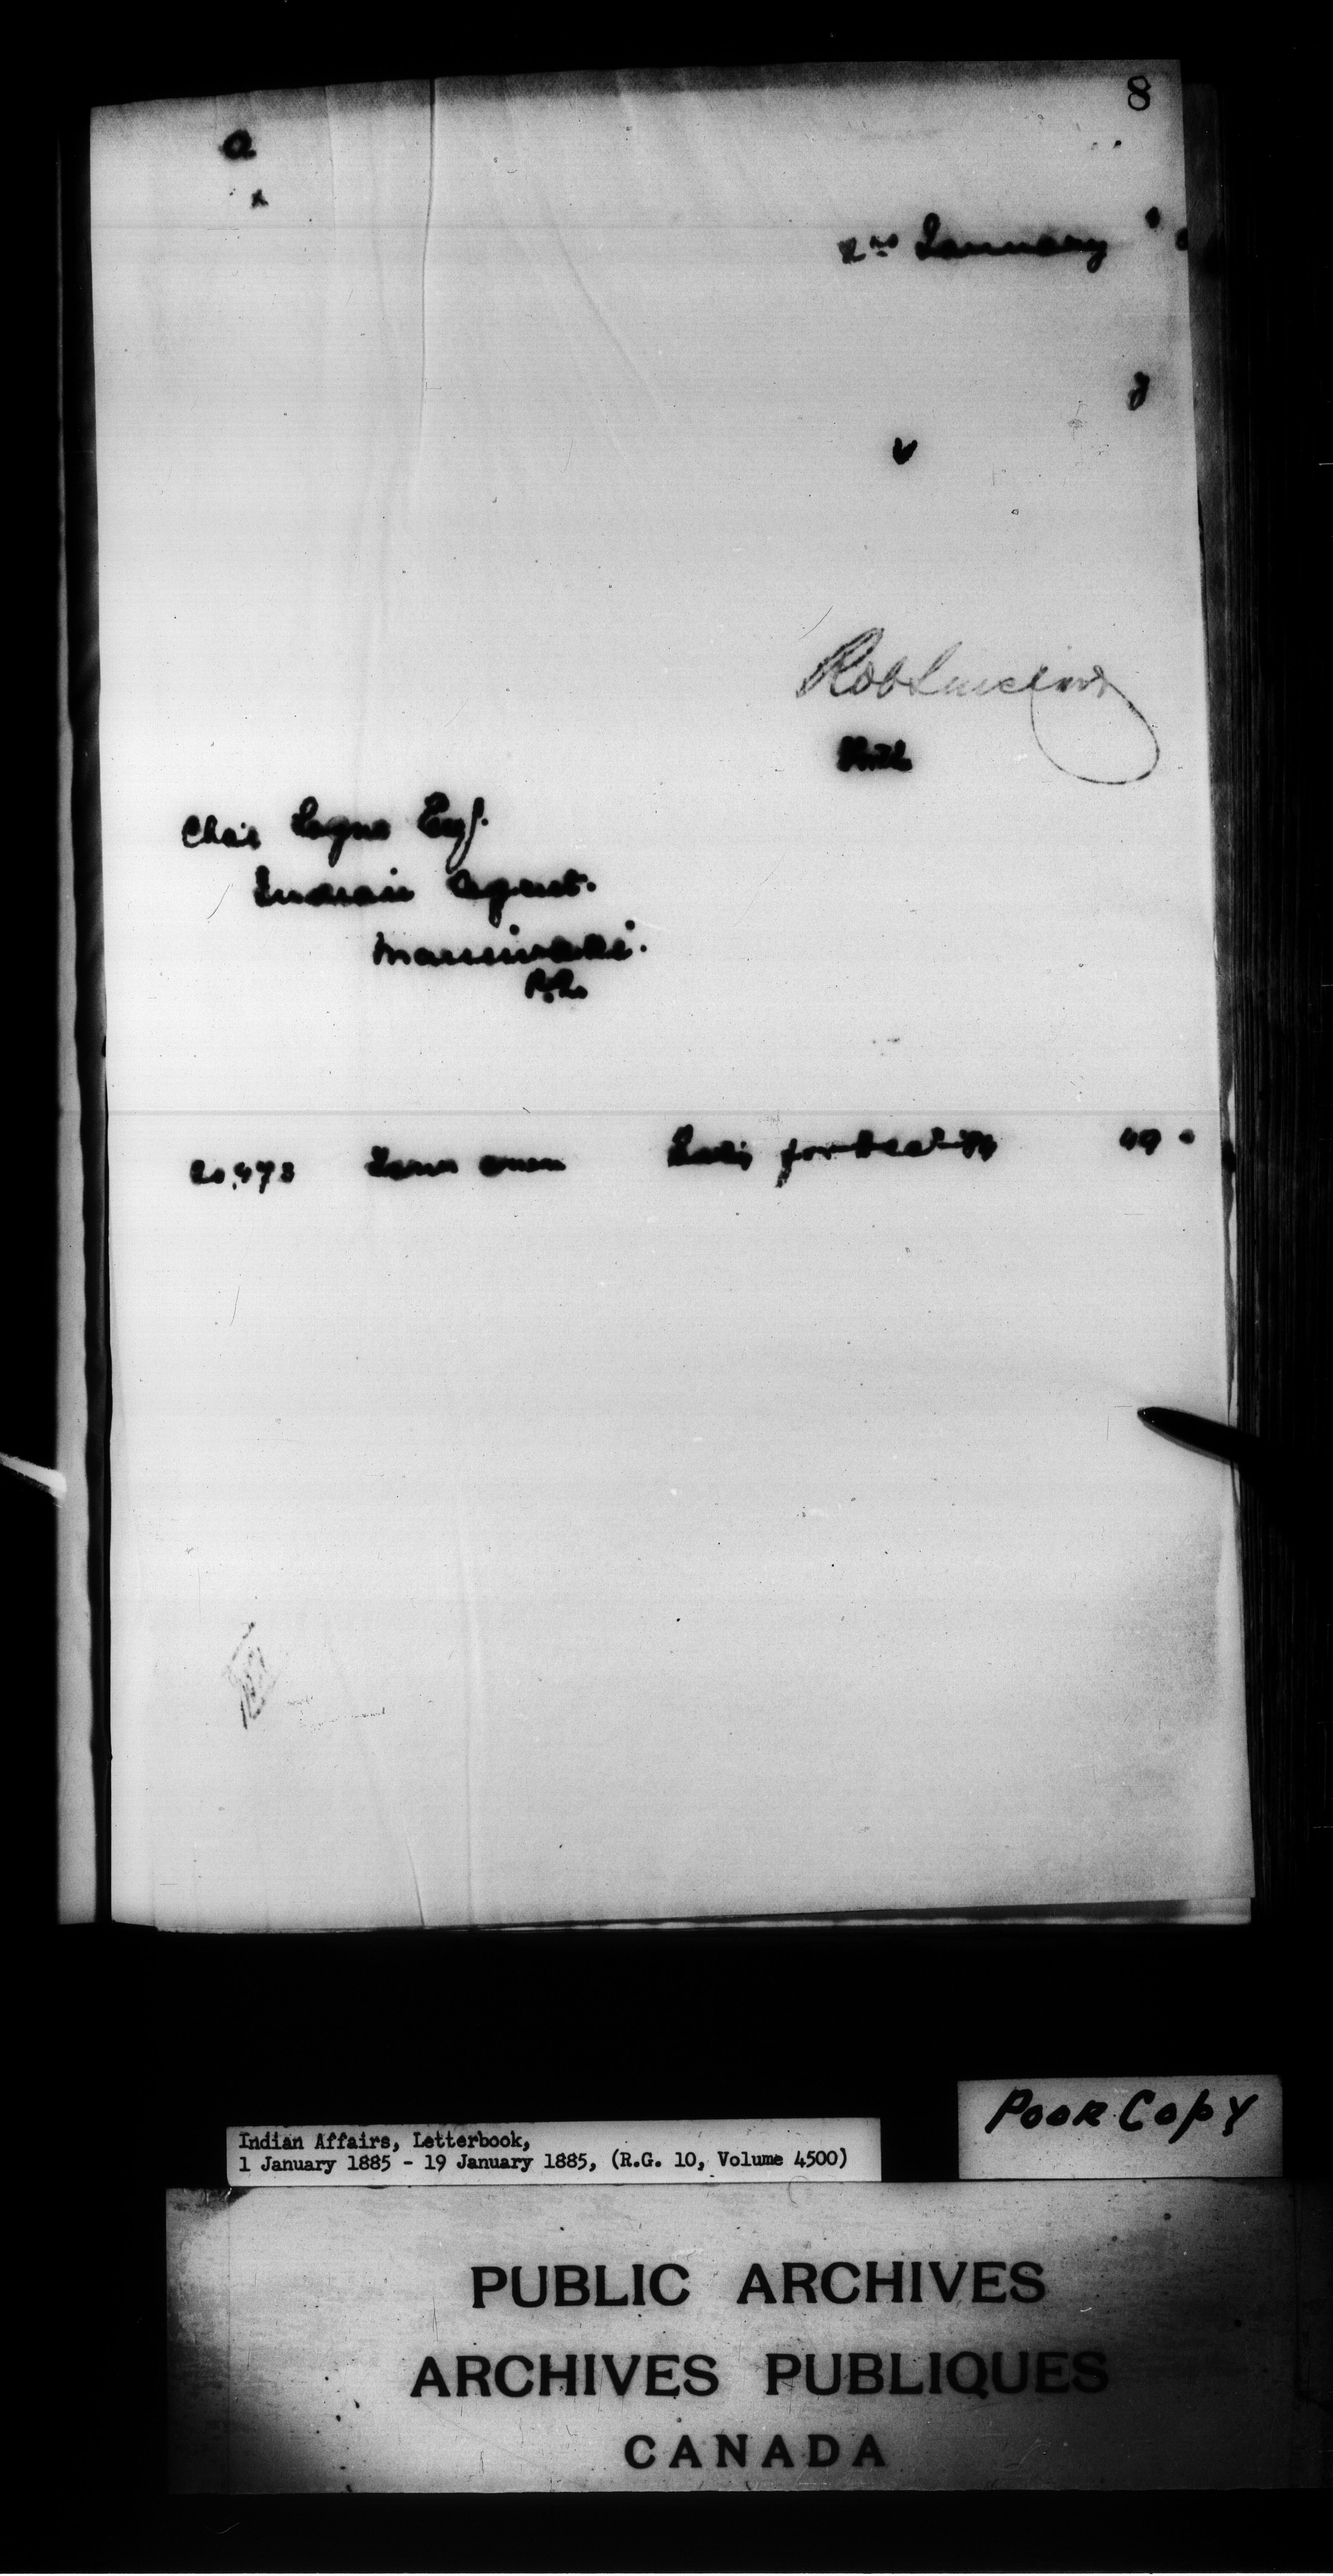 8
a
x
2nd January
v
Rob Sinclair
Chas Logue Esq.
Indian Agent.
Maniwaki.
P.Q.
20,473
Indian Affairs, Letterbook,
1 January 1885 - 19 January 1885, (R.G. 10, Volume 4500)
Poor Copy
PUBLIC ARCHIVES
ARCHIVES PUBLIQUES
CANADA